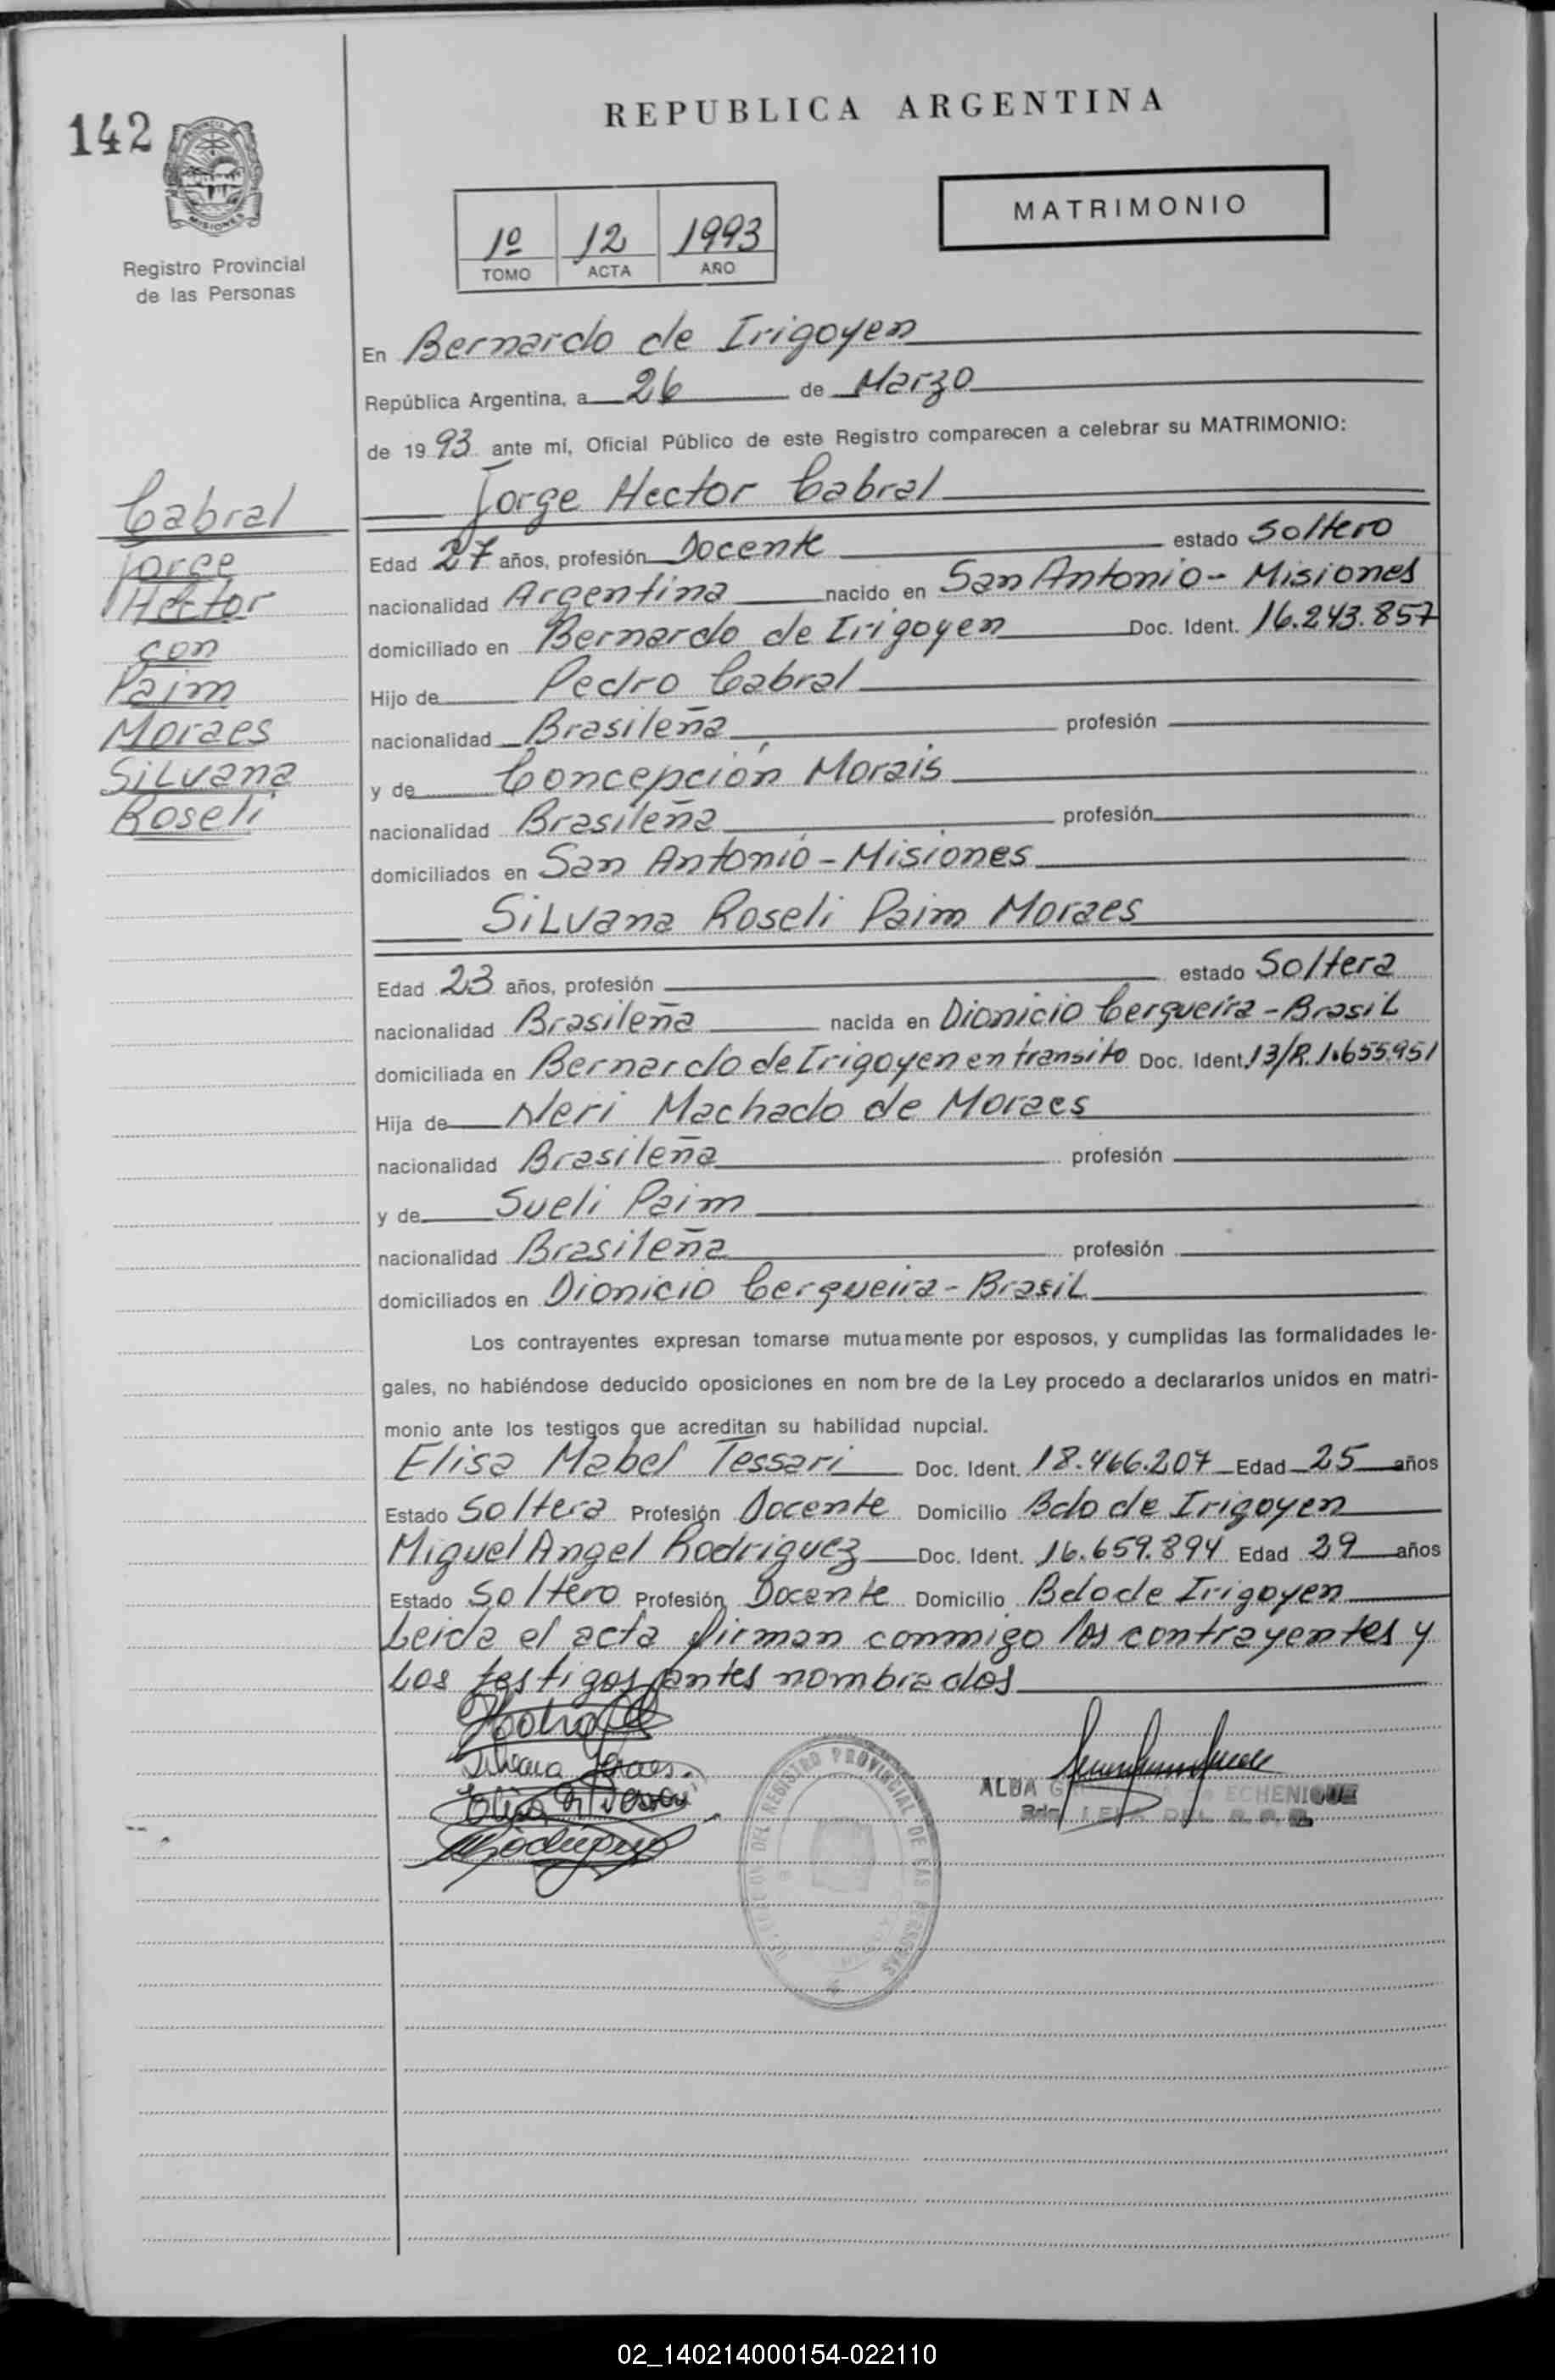 142
REPUBLICA ARGENTINA
PROVINCIA DE
MISIONES
Registro Provincial
de las Personas
1º 12 1993
TOMO ACTA AÑO
MATRIMONIO
En Bernardo de Irigoyen
República Argentina, a 26 de Marzo
de 1993 ante mí, Oficial Público de este Registro comparecen a celebrar su MATRIMONIO:
Jorge Hector Cabral
Cabral
Jorge
Hector
con
Paim
Moraes
Silvana
Roseli
Edad 27 años, profesión Docente estado Soltero
nacionalidad Argentina nacido en San Antonio - Misiones
domiciliado en Bernardo de Irigoyen Doc. Ident. 16.243.857
Hijo de Pedro Cabral
nacionalidad Brasileña profesión
y de Concepción Morais
nacionalidad Brasileña profesión
domiciliados en San Antonio - Misiones
Silvana Roseli Paim Moraes
Edad 23 años, profesión estado Soltera
nacionalidad Brasileña nacida en Dionicio Cerqueira - Brasil
domiciliada en Bernardo de Irigoyen en transito Doc. Ident. 13/R.1.655.951
Hija de Neri Machado de Moraes
nacionalidad Brasileña profesión
y de Sueli Paim
nacionalidad Brasileña profesión
domiciliados en Dionicio Cerqueira - Brasil
Los contrayentes expresan tomarse mutuamente por esposos, y cumplidas las formalidades le-
gales, no habiéndose deducido oposiciones en nom bre de la Ley procedo a declararlos unidos en matri-
monio ante los testigos que acreditan su habilidad nupcial.
Elisa Mabel Tessari Doc. Ident. 18.466.207 Edad 25 años
Estado Soltera Profesión Docente Domicilio Bdo de Irigoyen
Miguel Angel Rodriguez Doc. Ident. 16.659.894 Edad 29 años
Estado Soltero Profesión Docente Domicilio Bdo de Irigoyen
Leida el acta firman conmigo los contrayentes y
los testigos antes nombrados
Silvana Moraes
ALBA ECHENIQUE
DEL REGISTRO PROVINCIAL DE LAS PERSONAS
02_140214000154-022110